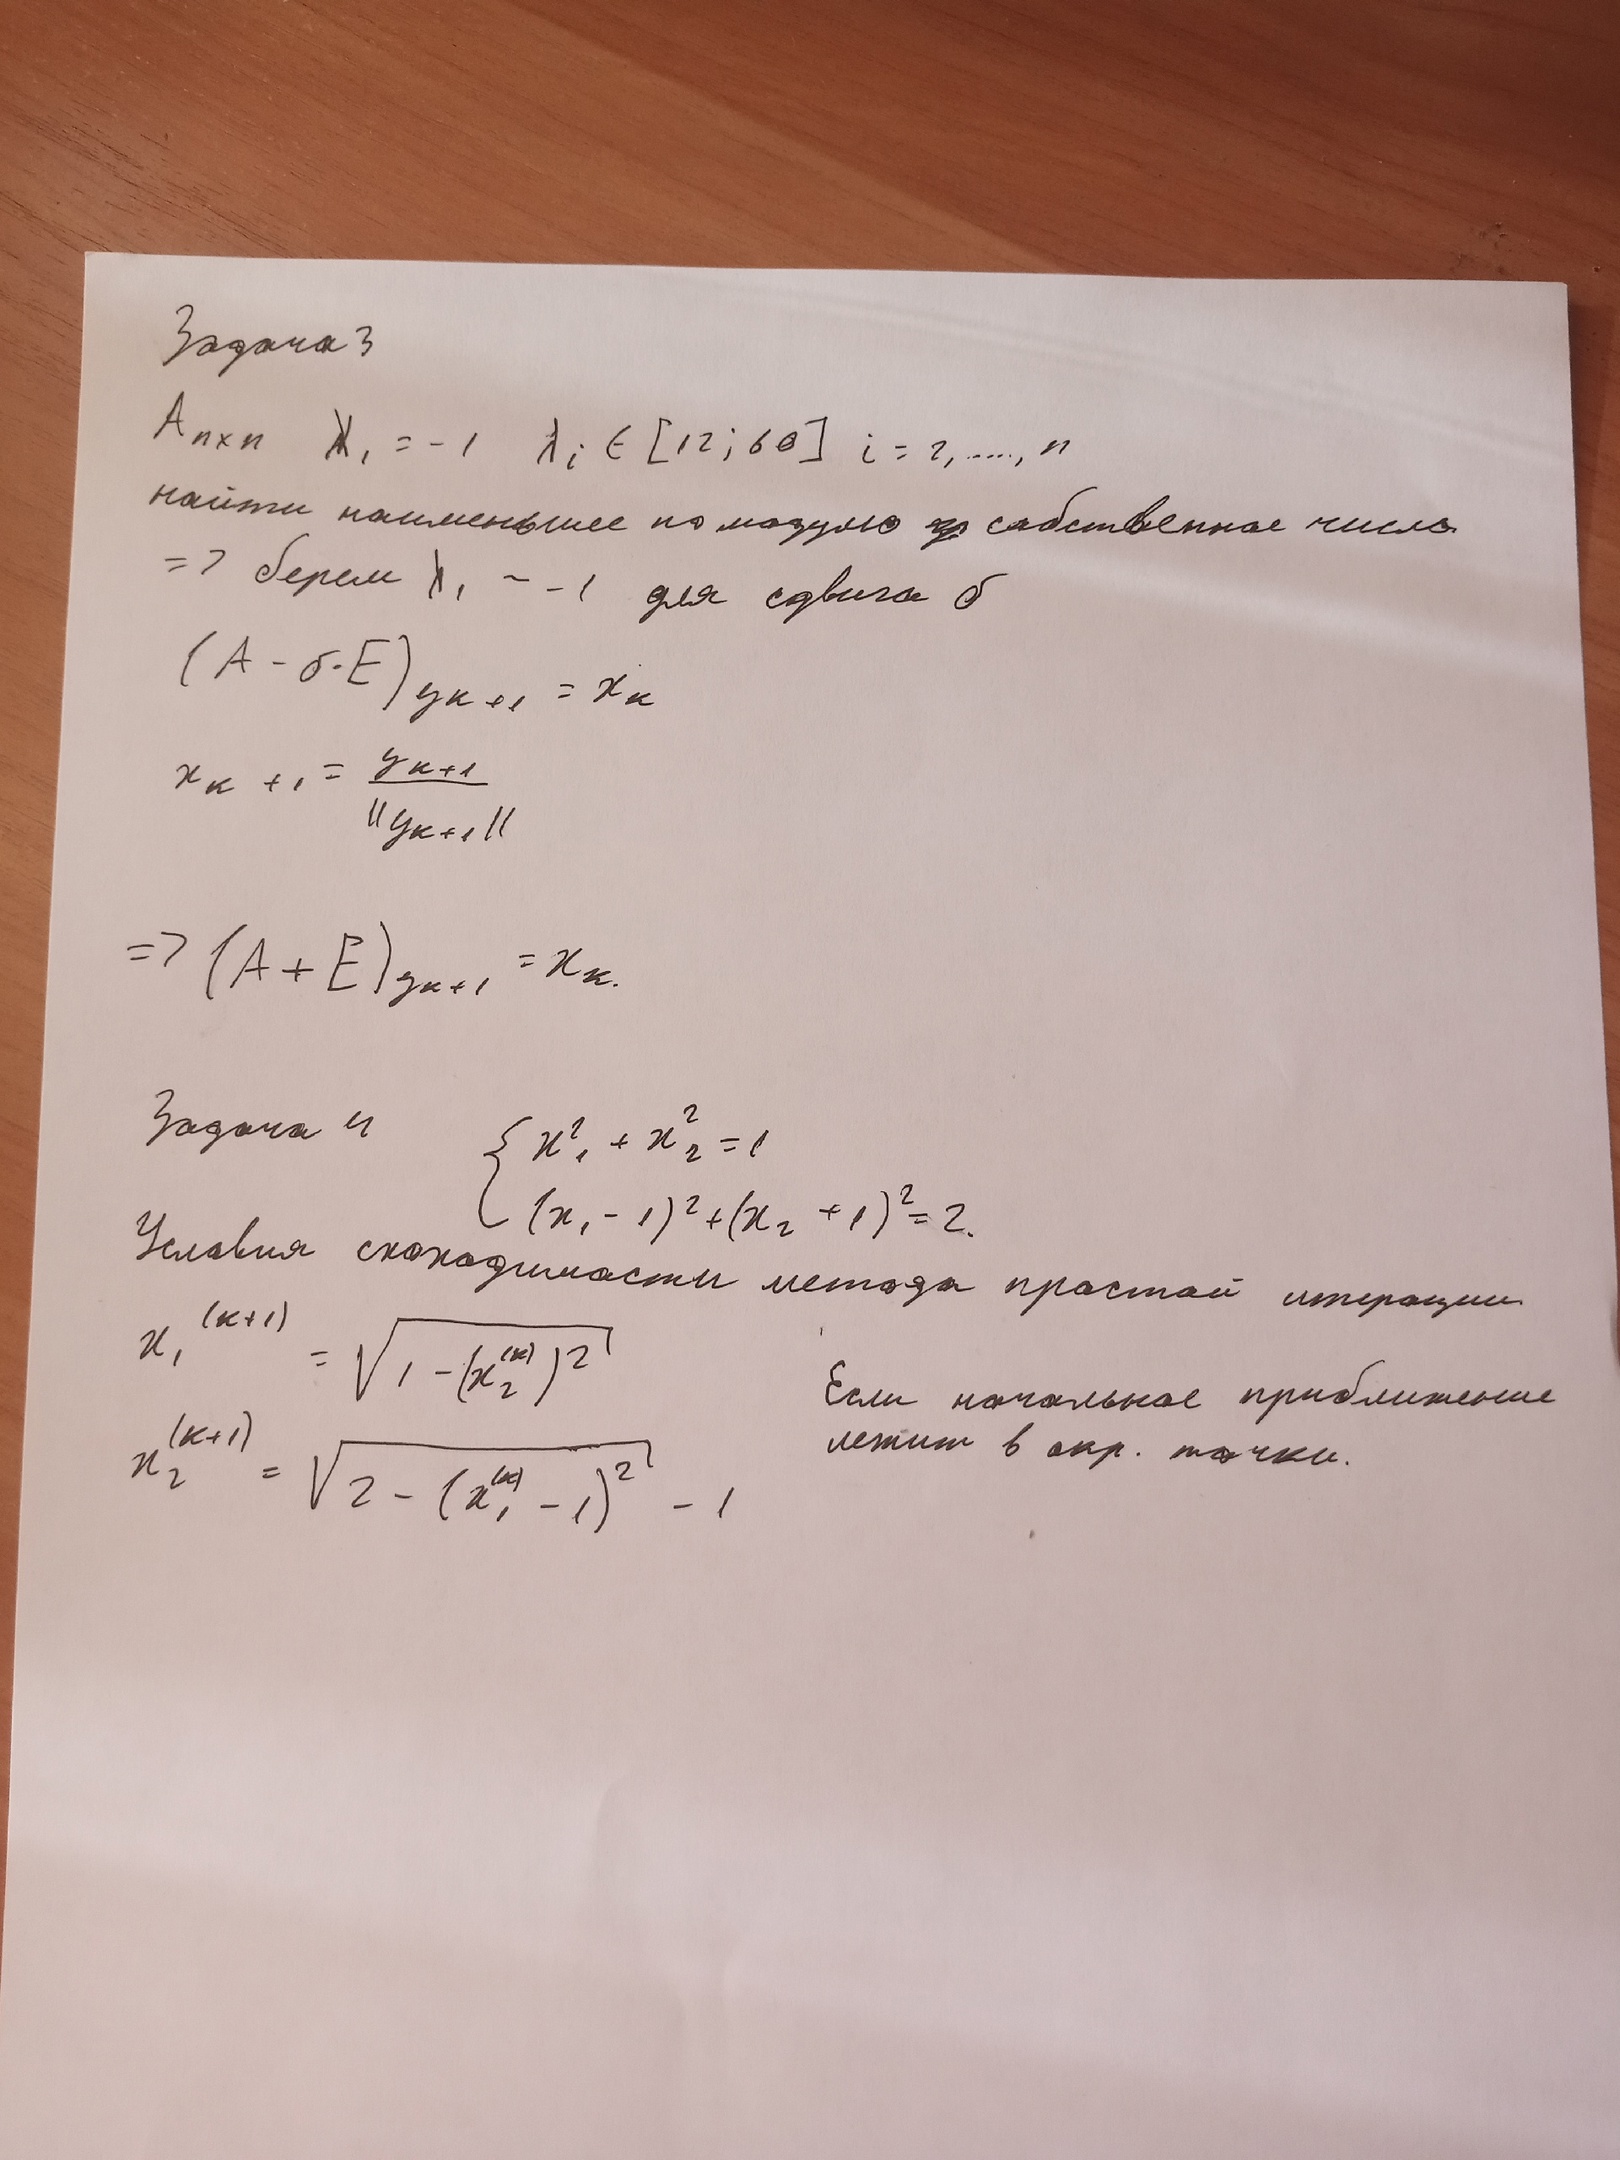 Задача 3
Aₙₓₙ λ₁ = -1 λᵢ ∈ [12; 60] i = 2, ....., n
найти наименьшее по модулю собственное число
=> берем λ₁ ~ -1 для сдвига σ
(A - σ·E)yₖ₊₁ = xₖ
xₖ₊₁ = yₖ₊₁ / ||yₖ₊₁||
=> (A + E)yₖ₊₁ = xₖ.
Задача 4
{ x₁² + x₂² = 1
(x₁ - 1)² + (x₂ + 1)² = 2.
Условия сходимости метода простой итерации
x₁⁽ᵏ⁺¹⁾ = √(1 - (x₂⁽ᵏ⁾)²)
x₂⁽ᵏ⁺¹⁾ = √(2 - (x₁⁽ᵏ⁾ - 1)²) - 1
Если начальное приближение
лежит в окр. точки.